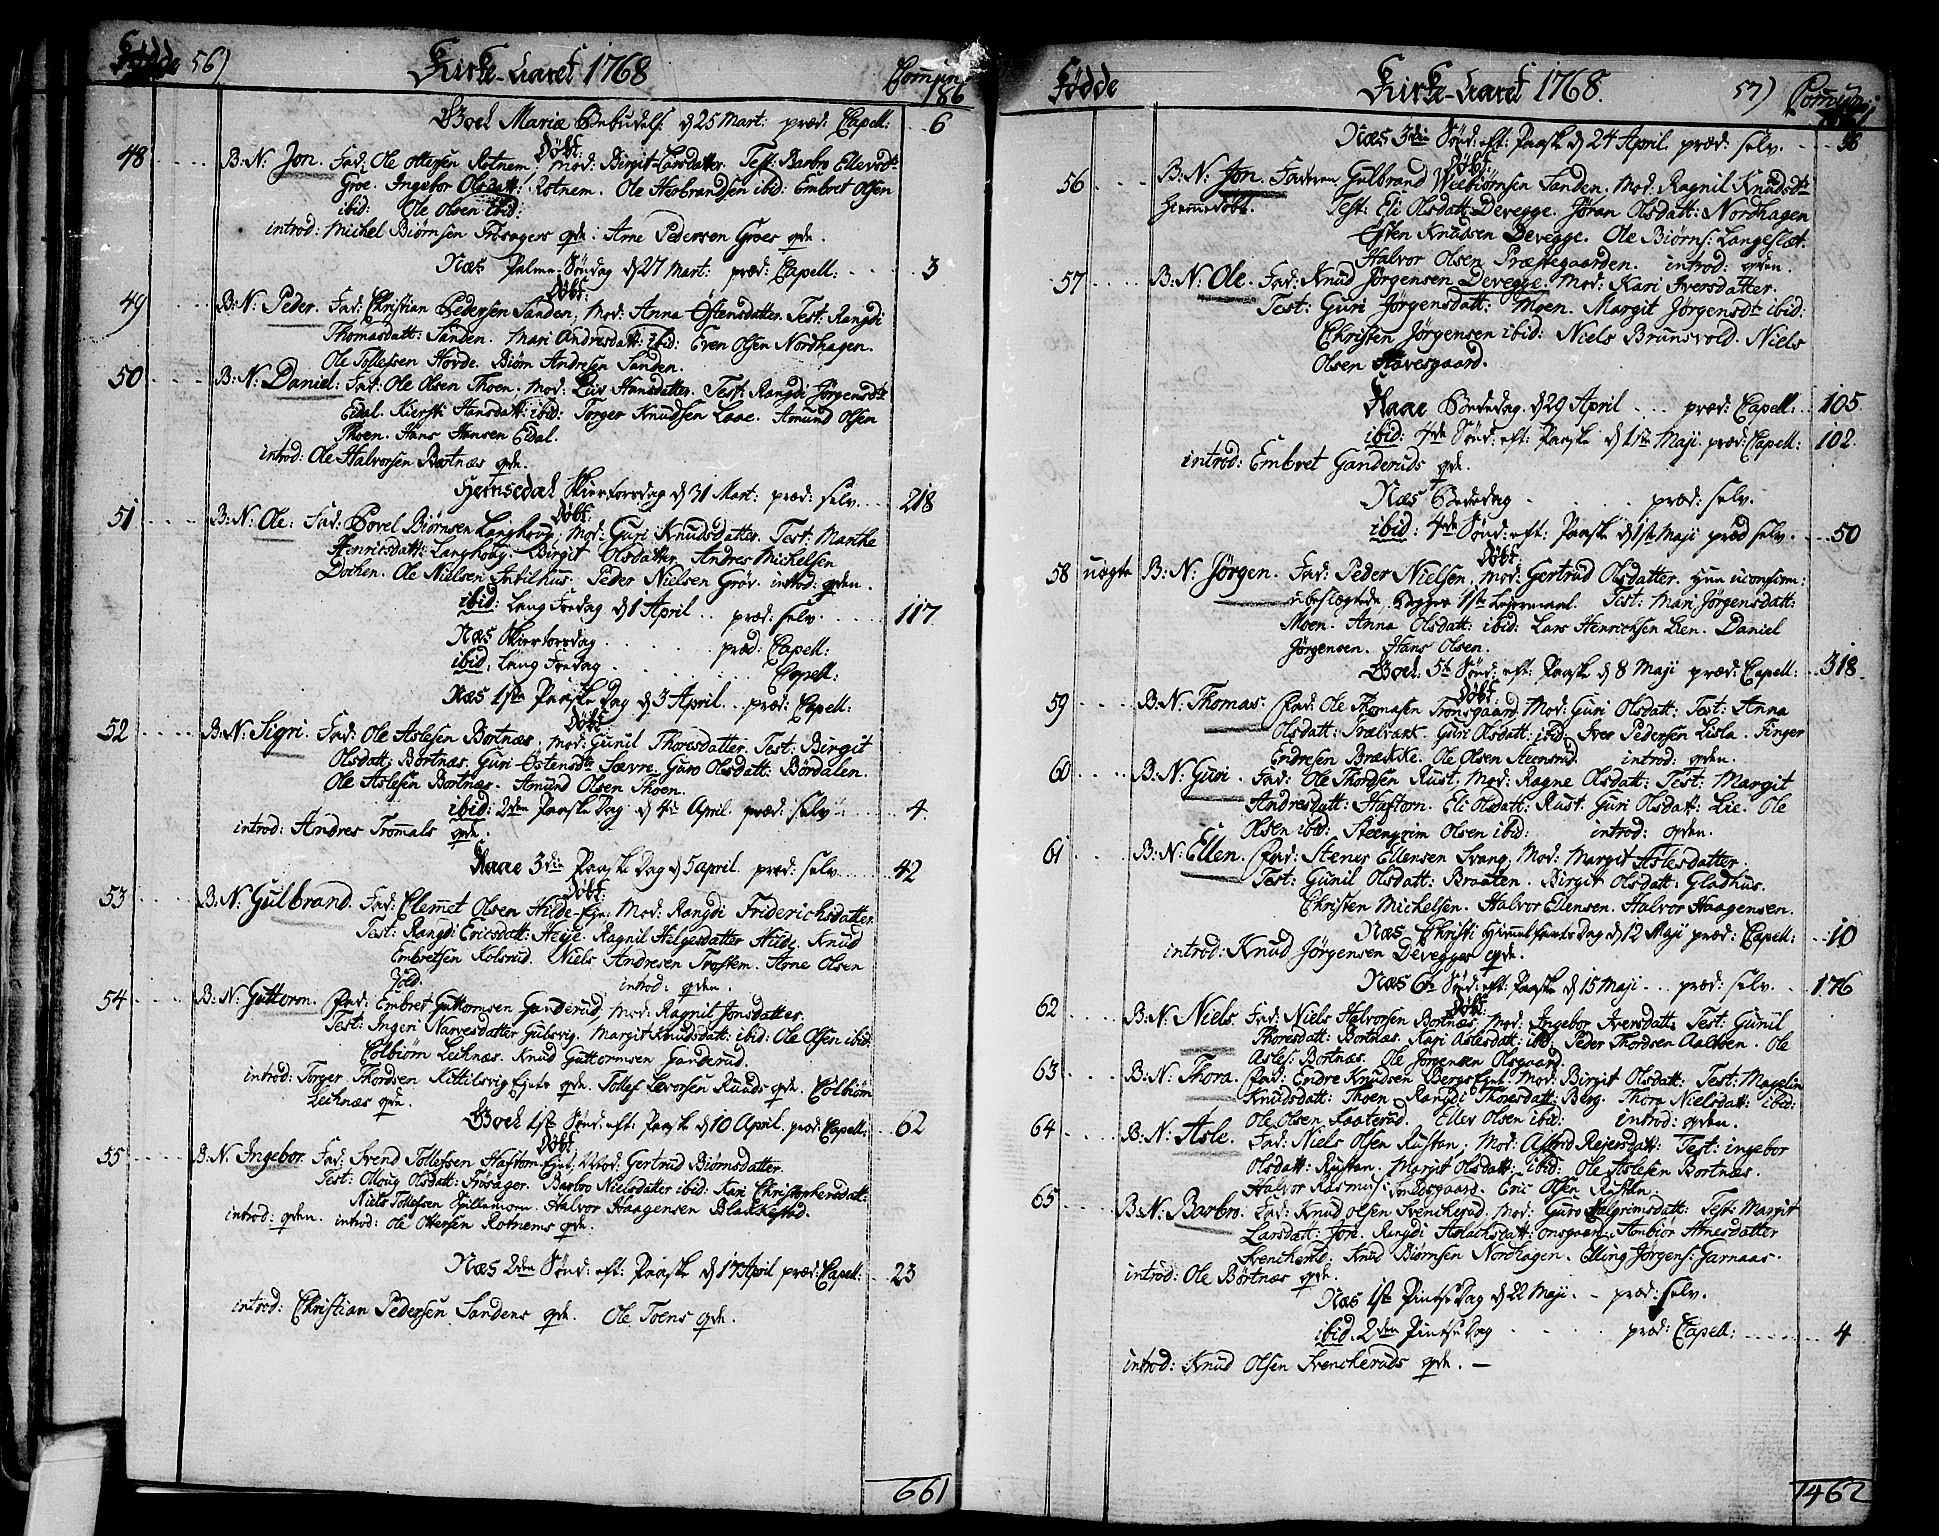 Fødde 56) Kirke-Aaret 1768 Com̄un:
186
Goel Mariæ Bebudels: d 25 Mart: præd: Capell: 6
Døbt:
48 B: N: Jon. Fad: Ole Ottersen Rotnem, Mod: Birgit Larsdatter. Test: Barbro Ellevsdt:
Groe. Ingebor Olsdatt: Rotnem. Ole Herbrandsen ibid: Embret Olsen
ibid: Ole Olsen ibid:
introd: Michel Biørnsen Frøsagers qde. Arne Pedersen Groes qde.
Næs Palme-Søndag d 27 Mart: præd: Capell: 3
Døbt:
49 B: N: Peder. Fad: Christian Pedersen Sanden, Mod: Anna Østensdatter. Test: Rangdi
Thomasdatt: Sanden. Mari Andresdatt: ibid: Even Olsen Nordhagen.
Ole Tollefsen Hovde. Biørn Andresen Sanden.
50 B: N: Daniel. Fad: Ole Olsen Thoen, Mod: Liv Hansdatter. Test: Rangdi Jørgensdt:
Eidal. Kiersti Hansdatt: ibid: Torger Knudsen Laae. Amund Olsen
Thoen. Hans Hansen Eidal.
introd: Ole Halvorsen Bortnæs qde.
Hemsedal Skiertorsdag d 31 Mart: præd: selv. 218
Døbt:
51 B: N: Ole: Fad: Povel Biørnsen Langhoug, Mod: Guri Knudsdatter. Test: Marthe
Henricsdatt: Langhoug. Birgit Olsdatter. Andres Michelsen
Dokken. Ole Nielsen Intilhus. Peder Nielsen Grøv. introd: qden.
ibid: Lang Fredag d 1 April præd: selv. 117
Næs Skiertorsdag præd: Capell:
ibid: Lang Fredag Capell:
Næs 1ste Paaske Dag d 3 April præd: Capell:
Døbt
52 B: N: Sigri. Fad: Ole Aslesen Bortnæs, Mod: Gunil Thoresdatter. Test: Birgit
Olsdatt: Bortnæs. Guri Østensdtr Sævre. Guro Olsdatt: Børdalen.
Ole Aslesen Bortnæs. Amund Olsen Thoen.
ibid: 2den Paaske Dag d 4de April præd: selv 4.
introd: Andres Tromals qde.
Aaae 3die Paaske Dag d 5 april. præd: selv 42
Døbt
53 B: N: Gulbrand. Fad: Clemet Olsen Hilde-Eje. Mod: Rangdi Friderichsdatter.
Test: Rangdi Ericsdatt: Heije. Ragnil Helgesdatter Hilde. Knud
Embretsen Kolsrud. Niels Andresen Trostem. Arne Olsen
introd: qden.
54 B: N: Guttorm. Fad: Embret Guttormsen Ganderud, Mod: Ragnil Jonsdatter.
Test: Ingeri Narvesdatter Gulsvig. Margit Knudsdatt: ibid: Ole Olsen ibid:
Colbiørn Leiknæs. Knud Guttormsen Ganderud.
introd: Torger Thordsen Kittilsvig Ejets qde. Tollef Levorsen Ruuds qde. Colbiørn
Leiknæs qde.
Goel 1ste Sønd: eft: Paaske d 10 April. præd: Capell: 62
Døbt
55 B: N: Ingebor. Fad: Svend Tollefsen Haftorn-Ejet, Mod: Gertrud Biørnsdatter.
Test: Olloug Olsdatt: Frøsager. Barbro Nielsdatter ibid: Kari Christophersdatt:
Niels Tollefsen Spillemom. Halvor Haagensen Blakkestad.
introd: qden. introd: Ole Ottersen Rotnems qde.
Næs 2den Sønd: eft: Paaske d 17 April præd: Capell: 23
introd: Christian Pedersen Sandens qde. Ole Toens qde.
661
Fødde Kirke-Aaret 1768. 57) Com̄uni
Næs 3die Sønd: eft: Paaske d 24 April præd: selv. 38
Døbt
56 B: N: Jon. Faderen Gulbrand Weebiørnsen Sanden. Mod: Ragnil Knudsdtr
Hiem̄edøbt. Test: Eli Olsdatt: Devegge. Jøran Olsdatt: Nordhagen
Esten Knudsen Devegge. Ole Biørns: Langeslæt.
Halvor Olsen Præstegaarden. introd: qden.
57 B: N: Ole. Fad: Knud Jørgensen Devegge. Mod: Kari Iversdatter.
Test: Guri Jørgensdatt: Moen. Margit Jørgensdtr ibid:
Christen Jørgensen ibid: Niels Brunsvold. Niels
Olsen Stavesgaard.
Aaae Bededag d 29 April præd: Capell: 105
ibid: 4de Sønd: eft: Paaske d 1ste Maji præd: Capell: 102
introd: Embret Ganderuds qde.
Næs Bededag præd: selv.
ibid: 4de Sønd: eft: Paaske d 1ste Maji præd selv. 50
Døbt
58 uægte B: N: Jørgen. Fad: Peder Nielsen, Mod: Gertrud Olsdatter. Hun uconfirm:
ubeslægtede, Begges 1ste Lejermaal. Test: Mari Jørgensdatt:
Moen. Anna Olsdatt: ibid: Lars Henrichsen Lien. Daniel
Jørgensen. Hans Olsen.
Goel 5te Sønd: eft: Paaske d 8 Maji præd: Capell: 318
Døbt
59 B: N: Thomas. Fad: Ole Thomasen Tronsgaard. Mod: Guri Olsdatt: Test: Anna
Olsdatt: Trælvark. Guri Olsdatt: ibid: Iver Pedersen Lisla. Finger
Endresen Brække. Ole Olsen Steensrud. introd: qden.
60 B: N: Guri. Fad: Ole Thordsen Rust, Mod: Ragne Olsdatt: Test: Margit
Andresdatt: Haftorn. Eli Olsdatt: Rust. Guri Olsdatt: Lie. Ole
Olsen ibid: Steengrim Olsen ibid: introd: qden.
61 B: N: Ellen. Fad: Stener Ellensen Svang, Mod: Margit Aslesdatter.
Test: Gunil Olsdatt: Braaten. Birgit Olsdatt: Gladhus.
Christen Michelsen. Halvor Ellensen. Halvor Haagensen.
Næs Christi Himmelfarts Dag d 12 Maji præd: Capell: 10
introd: Knud Jørgensen Devegges qde.
Næs 6te Sønd: eft: Paaske d 15 Maji præd: selv. 176
Døbt
62 B: N: Niels. Fad: Niels Halvorsen Bortnæs, Mod: Ingebor Iversdatt. Test: Gunil
Thoresdatt: Bortnæs. Kari Aslesdatt: ibid: Peder Thordsen Aalkben. Ole
Asles: Bortnæs. Ole Jørgensen Olsgaard.
63 B: N: Thora. Fad: Endre Knudsen Bergs Ejet. Mod: Birgit Olsdatt: Test: Magelin
Knudsdatt: Thoen. Rangdi Thoresdatt: Berg. Thora Nielsdatt: ibid:
Ole Olsen Saaterud. Ellev Olsen ibid: introd: qden.
64 B: N: Asle. Fad: Niels Olsen Rustan, Mod: Astrd Rejersdatt: Test: ingebor
Olsdatt: Rustan. Margit Olsdatt: ibid: Ole Aslesen Bortnæs.
Halvor Rasmus: Sndregaard. Eric Olsen Rustan.
65 B: N: Barbro. Fad: Knud Olsen Svenkerud, Mod: Guro Halgrimsdatt: Test: Margit
Larsdatt: Jore. Rangdi Aslaksdatt: Onsgaard. Anbiør Arnesdatter
Svenckerud. Knud Biørnsen Nordhagen. Elling Jørgens: Garnaas.
introd: Ole Børtnæs qde.
Næs 1ste Pintse Dag d 22 Maji præd: selv.
ibid. 2den Pintse Dag præd: Capell: 4
introd: Knud Olsen Svenckeruds qde. —
1462